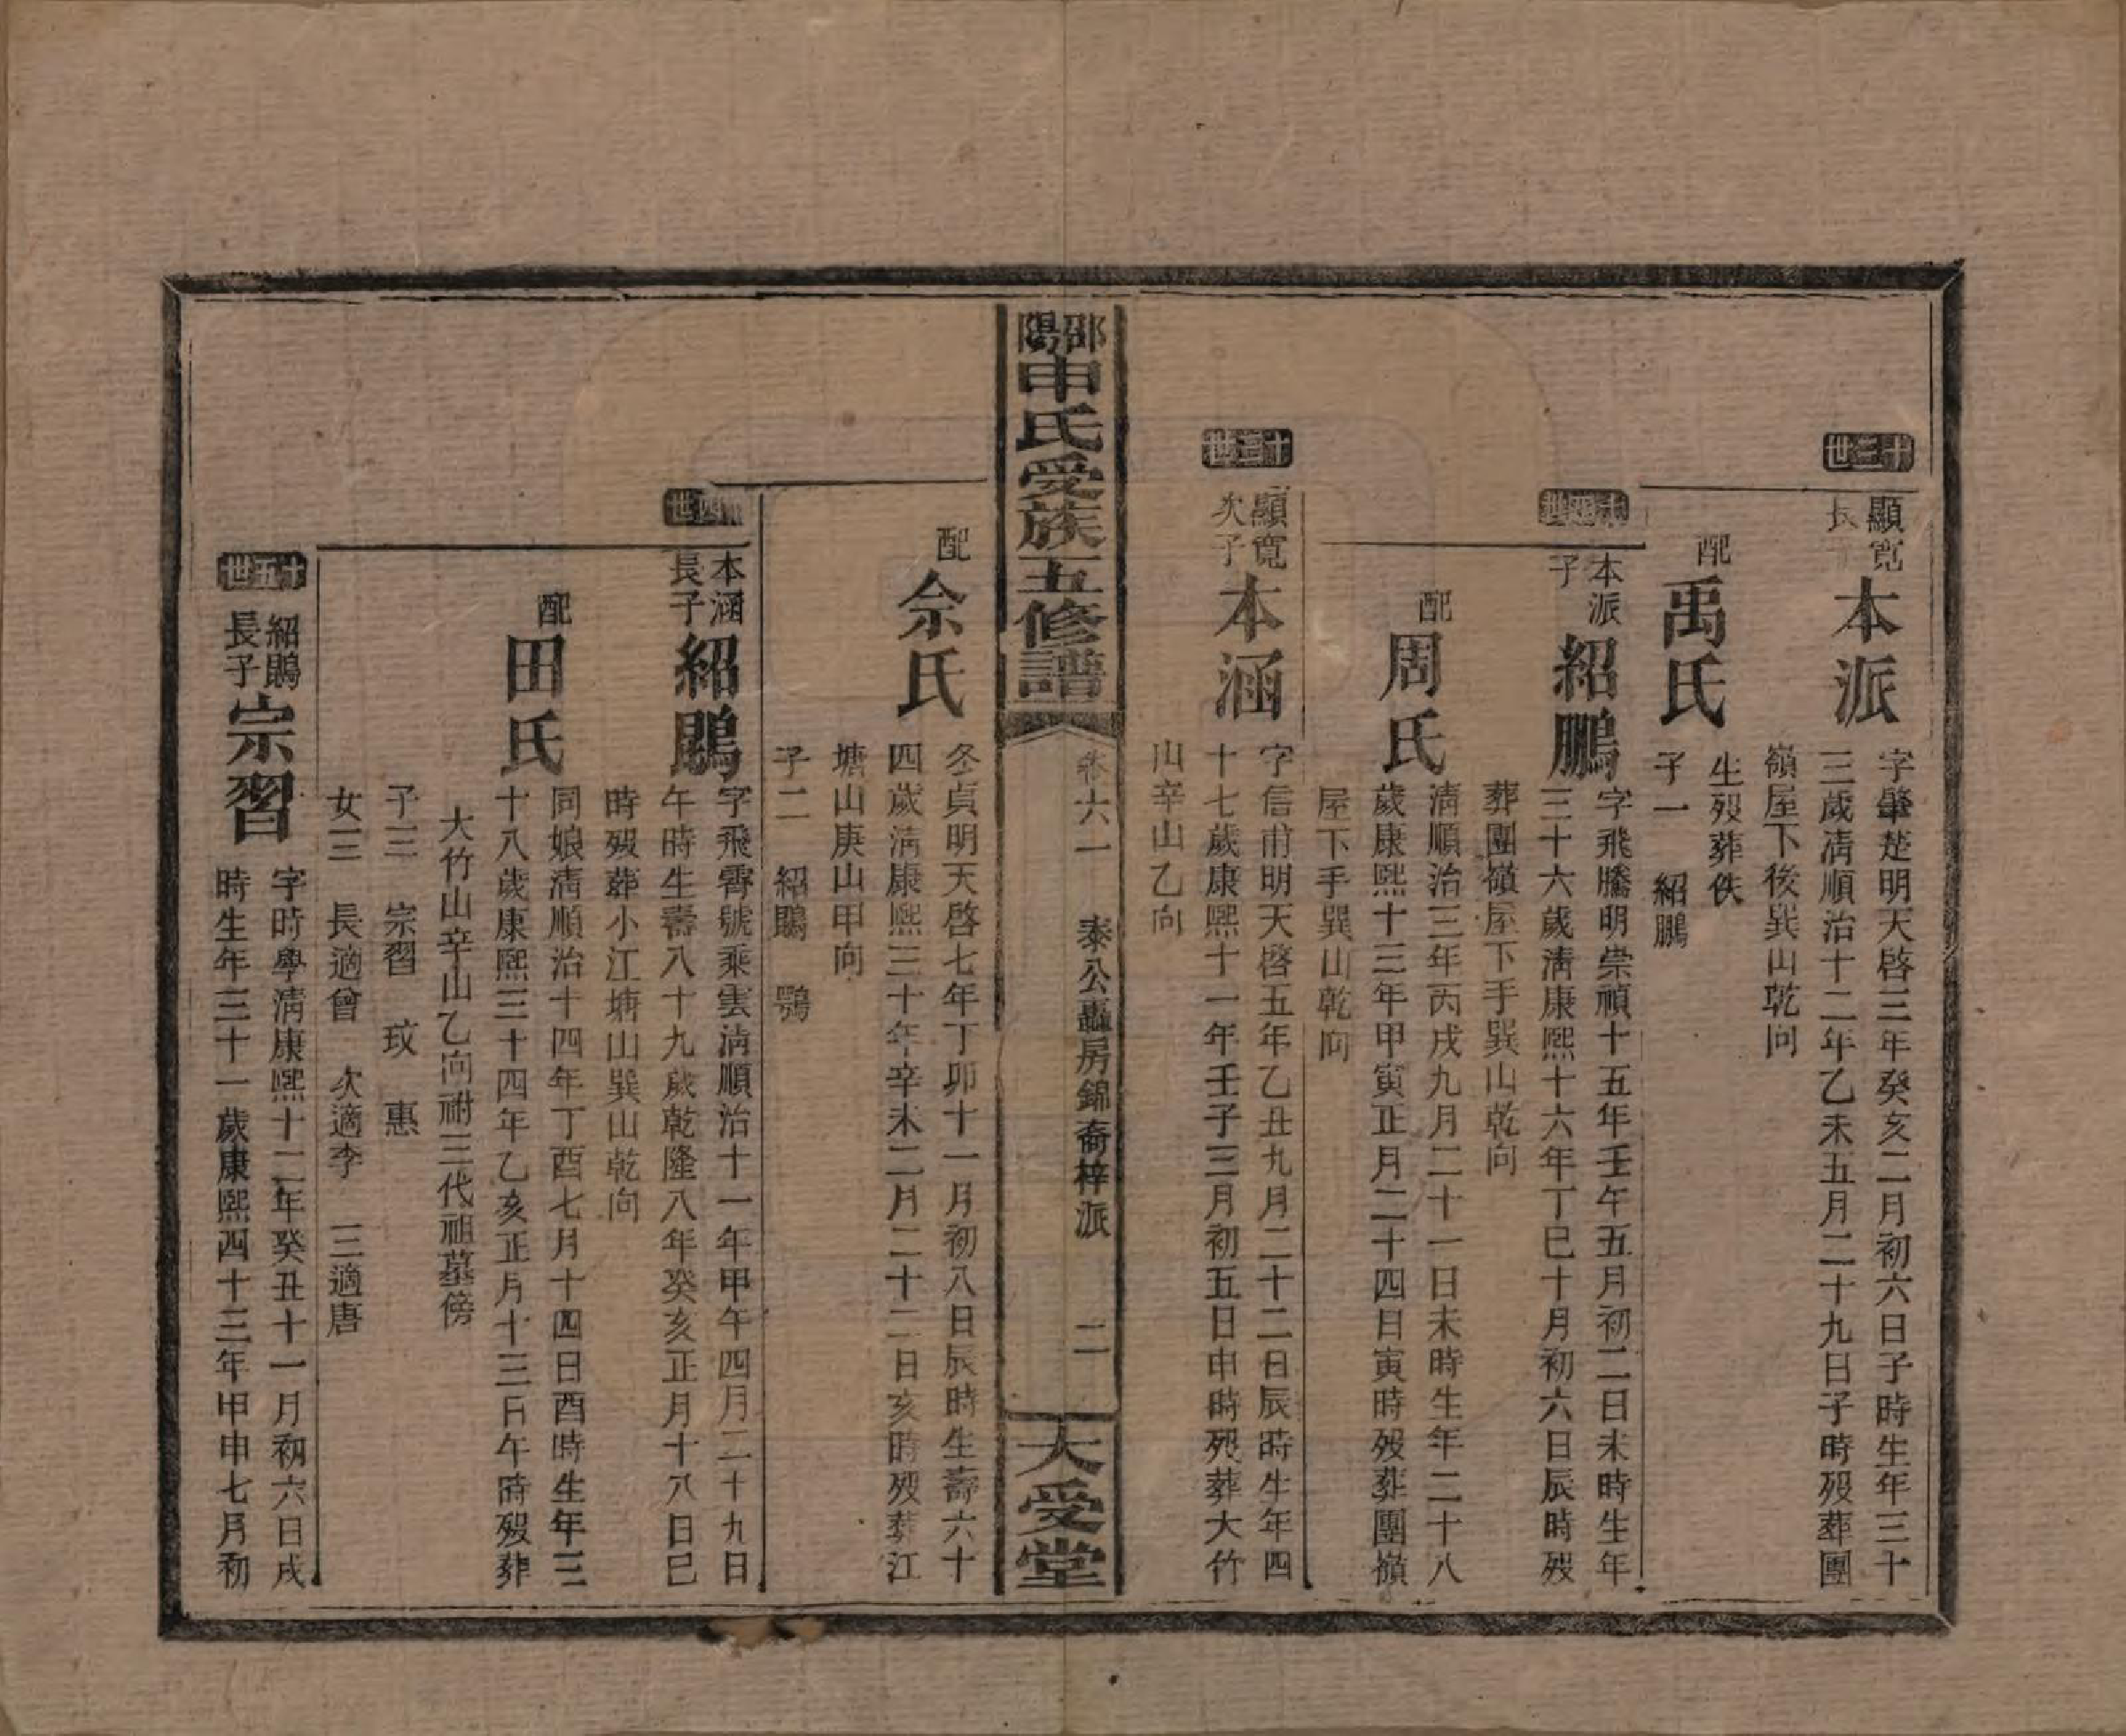 十三世
顯寛
長
本派
字肇楚明天啓三年癸亥二月初六日子時生年三十
三歲淸順治十二年乙未五月二十九日子時歿葬團
嶺屋下後巽山乾向
配
禹氏
生歿葬佚
子一　紹鵬
十四世
本派
子
紹鵬
字飛騰明崇禎十五年壬午五月初二日未時生年
三十六歲淸康熙十六年丁巳十月初六日辰時歿
葬團嶺屋下手巽山乾向
配
周氏
淸順治三年丙戌九月二十一日未時生年二十八
歲康熙十三年甲寅正月二十四日寅時歿葬團嶺
屋下手巽山乾向
十三世
顯寛
次子
本涵
字信甫明天啓五年乙丑九月二十二日辰時生年四
十七歲康熙十一年壬子三月初五日申時歿葬大竹
山辛山乙向
邵陽申氏受族五修譜
卷六一　泰公轟房錦裔梓派　二
大受堂
配
佘氏
冬貞明天啓七年丁卯十一月初八日辰時生壽六十
四歲淸康熙三十年辛未二月二十二日亥時歿葬江
塘山庚山甲向
子二　紹鵰　鶚
十四世
本涵
長子
紹鵰
字飛霄號乘雲淸順治十一年甲午四月二十九日
午時生壽八十九歲乾隆八年癸亥正月十八日巳
時歿葬小江塘山巽山乾向
配
田氏
同娘淸順治十四年丁酉七月十四日酉時生年三
十八歲康熙三十四年乙亥正月十三日午時歿葬
大竹山辛山乙向祔三代祖墓傍
子三　宗習　玟　惠
女三　長適曾　次適李　三適唐
十五世
紹鵰
長子
宗習
字時學淸康熙十二年癸丑十一月初六日戌
時生年三十一歲康熙四十三年甲申七月初